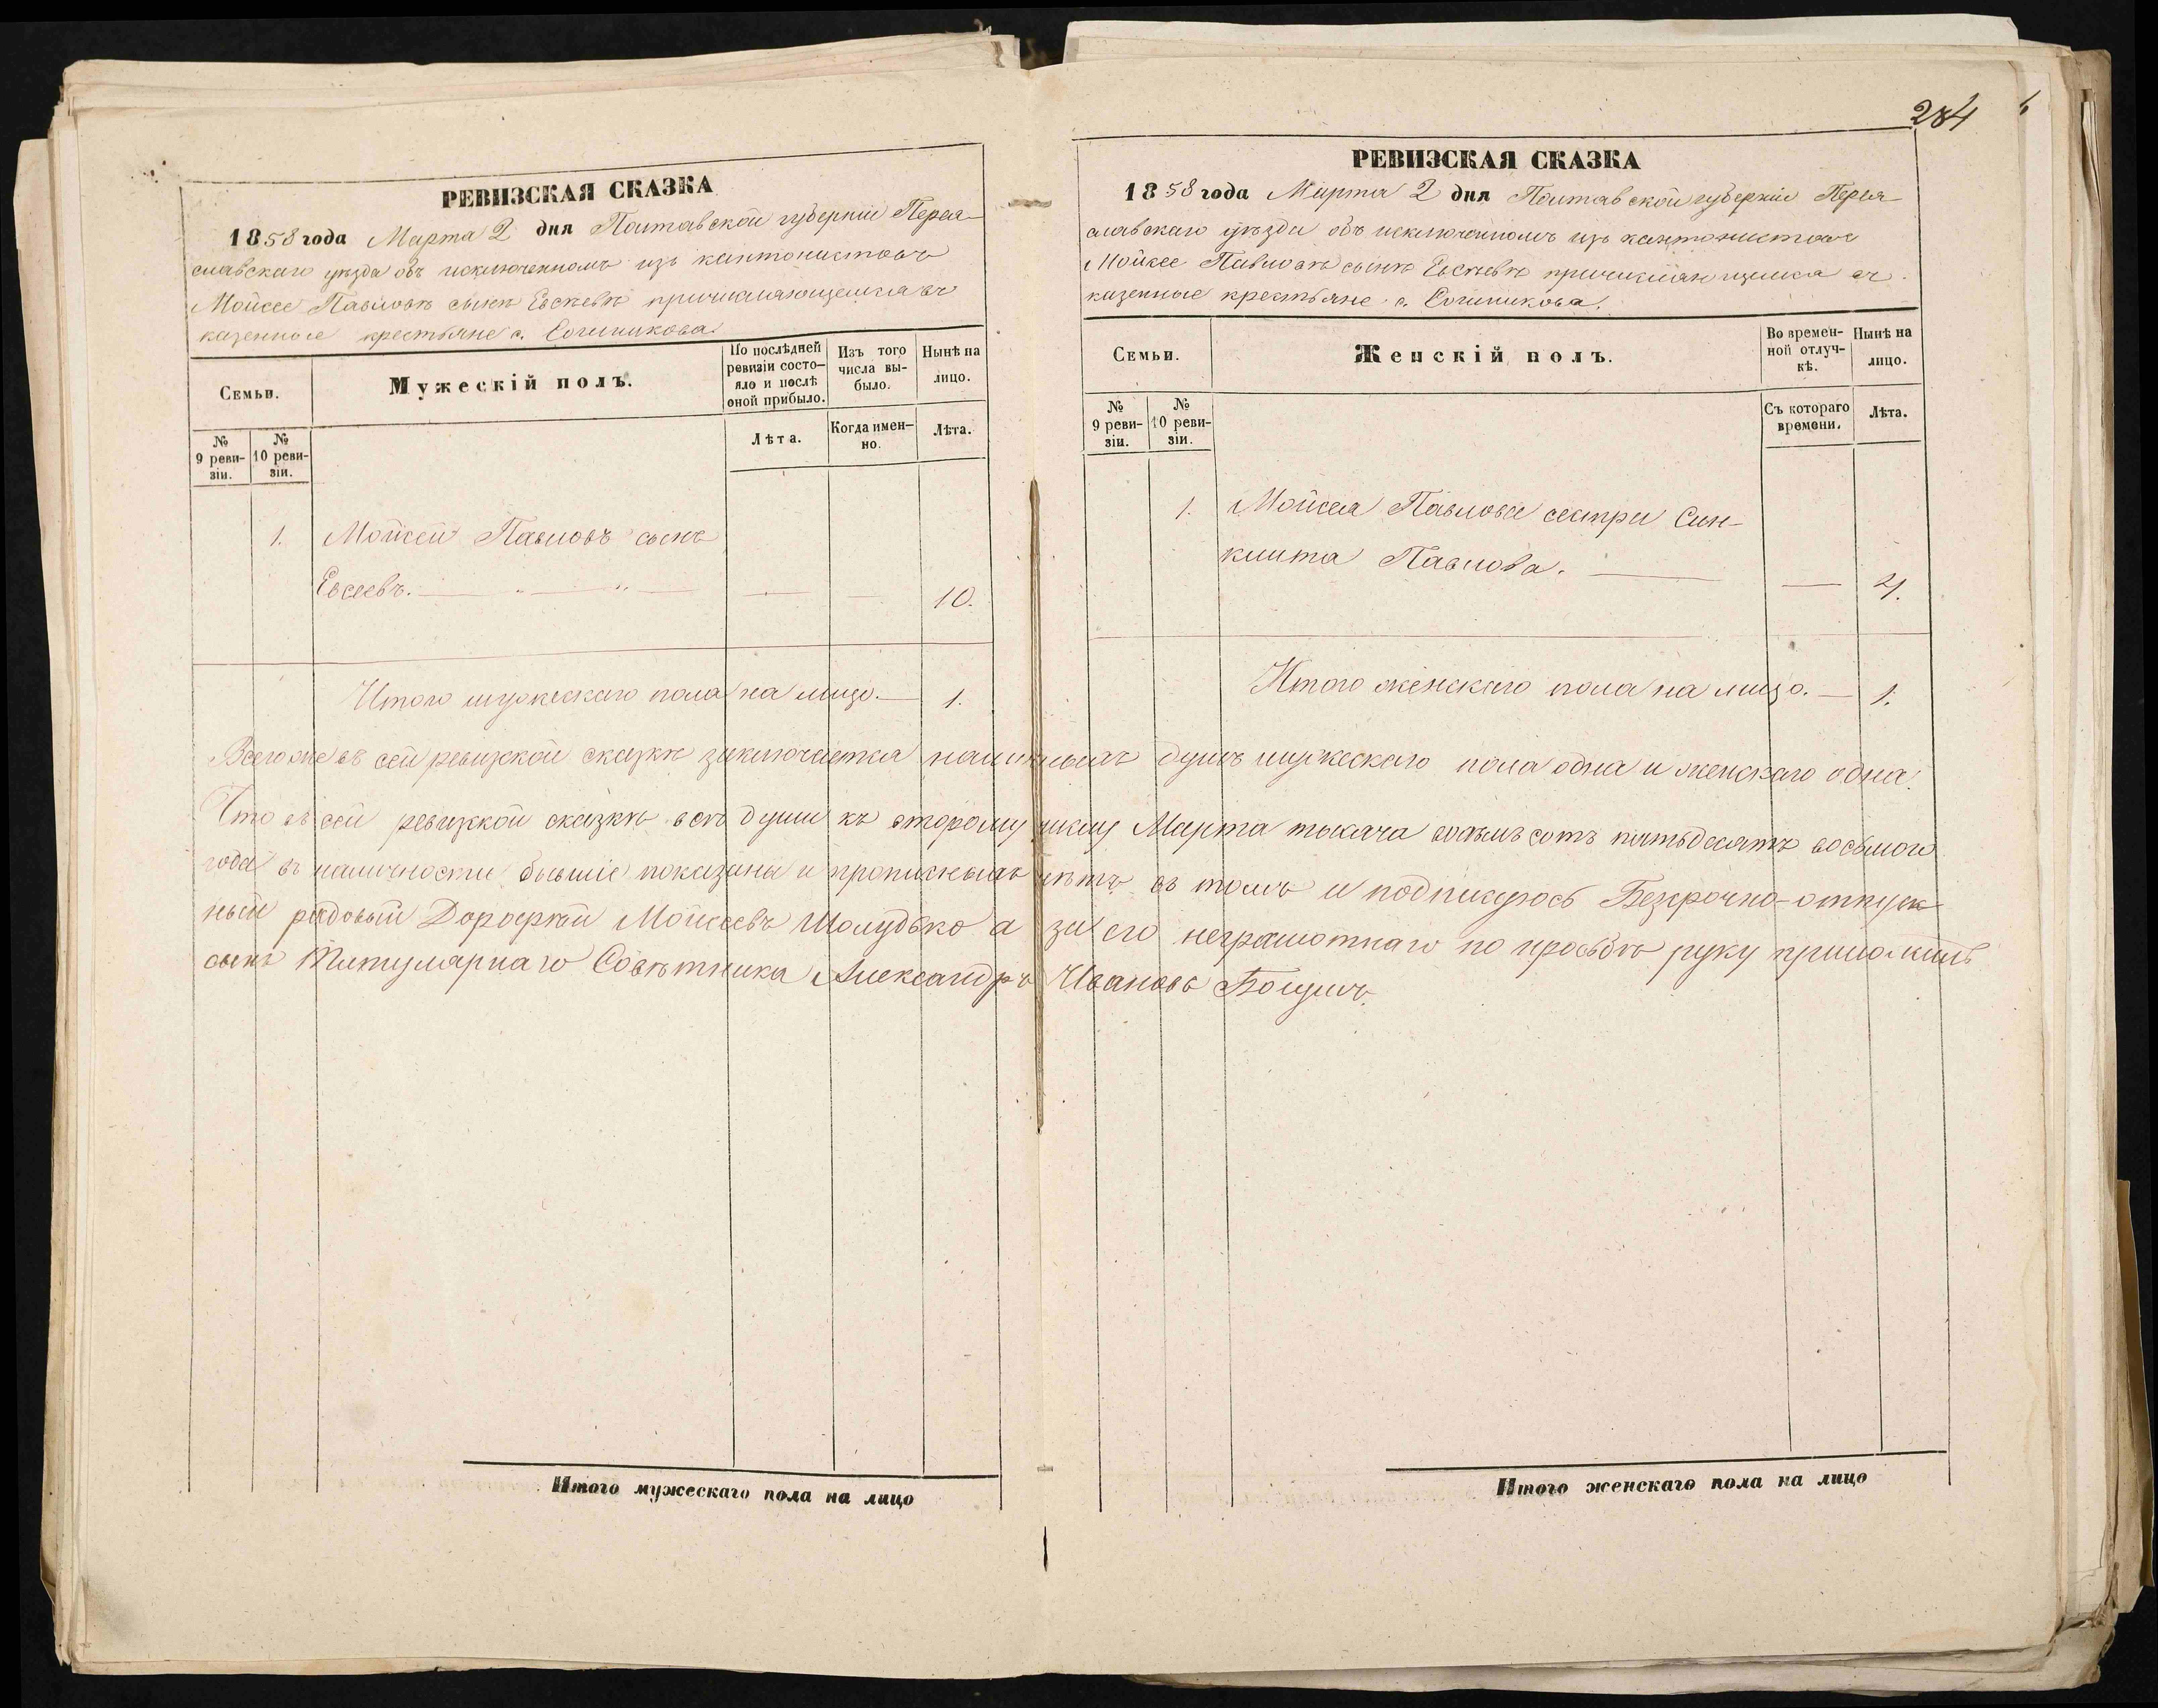 РЕВИЗСКАЯ СКАЗКА
1858 года Марта 2 дня Полтавской губерніи Перея-
славскаго уѣзда объ исключенномъ изъ кантонистовъ
Мойсее Павловѣ сынѣ Евсѣевѣ причисляющемся въ
казенные крестьяне с. Сошникова.
Семьи.
Мужескій полъ.
По послѣдней ревизіи состо-яло и послѣ оной прибыло.
Изъ того числа вы-было.
Нынѣ на лицо.
№ 9 реви-зіи.
№ 10 реви-зіи.
Лѣта.
Когда имен-но.
Лѣта.
1. Мойсей Павловъ сынъ
Евсеевъ. — — — — 10.
Итого мужескаго пола на лицо. — 1.
284
РЕВИЗСКАЯ СКАЗКА
1858 года Марта 2 дня Полтавской губерніи Перея-
славскаго уѣзда объ исключенномъ изъ кантонистовъ
Мойсее Павловѣ сынѣ Евсѣевѣ причисляющемся въ
казенные крестьяне с. Сошникова.
Семьи.
Женскій полъ.
Во времен-ной отлуч-кѣ.
Нынѣ на лицо.
№ 9 реви-зіи.
№ 10 реви-зіи.
Съ котораго времени.
Лѣта.
1. Мойсея Павлова сестра Син-
клита Павлова. — —
Итого женскаго пола на лицо. — 1.
Всего же въ сей ревизкой сказкѣ заключается наличныхъ душъ мужескаго пола одна и женскаго одна.
Что въ сей ревизкой сказкѣ всѣ души къ второму числу Марта тысяча восемь сотъ пятьдесятъ восьмого
года въ наличности бывшіе показаны и прописныхъ нѣтъ въ томъ и подписуюсь Безсрочно-отпуск-
ный рядовый Дорофей Мойсеевъ Шолудько а за его неграмотнаго по просьбѣ руку приложилъ
сынъ Титулярнаго Совѣтника Александръ Ивановъ
Итого мужескаго пола на лицо
Итого женскаго пола на лицо